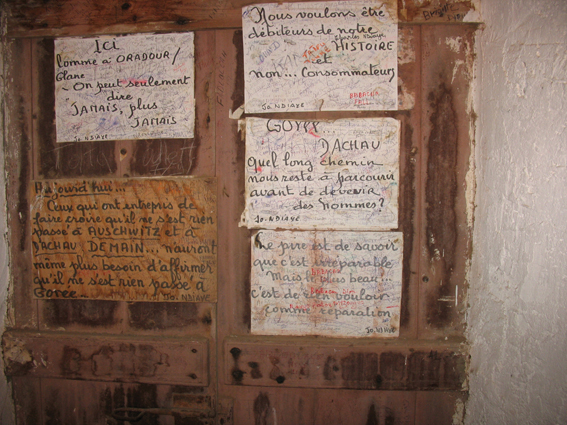 ICI
Comme à ORADOUR/
Glane
- On peut seulement
dire
JAMAIS, plus
JAMAIS
Jo. NDIAYE
Nous voulons être
débiteurs de notre
HISTOIRE
et
non... Consommateurs
Jo. NDIAYE
GOREE...
DACHAU
Quel long chemin
nous reste à parcourir
avant de devenir
des hommes?
Jo. NDIAYE
Aujourd'hui...
Ceux qui ont entrepris de
faire croire qu'il ne s'est rien
passé à AUSCHWITZ et à
DACHAU DEMAIN... n'auront
même plus besoin d'affirmer
qu'il ne s'est rien passé à
Gorée...
Jo. NDIAYE
Le pire est de savoir
que c'est irréparable
Mais le plus beau
c'est de rien vouloir
comme réparation
Jo. NDIAYE